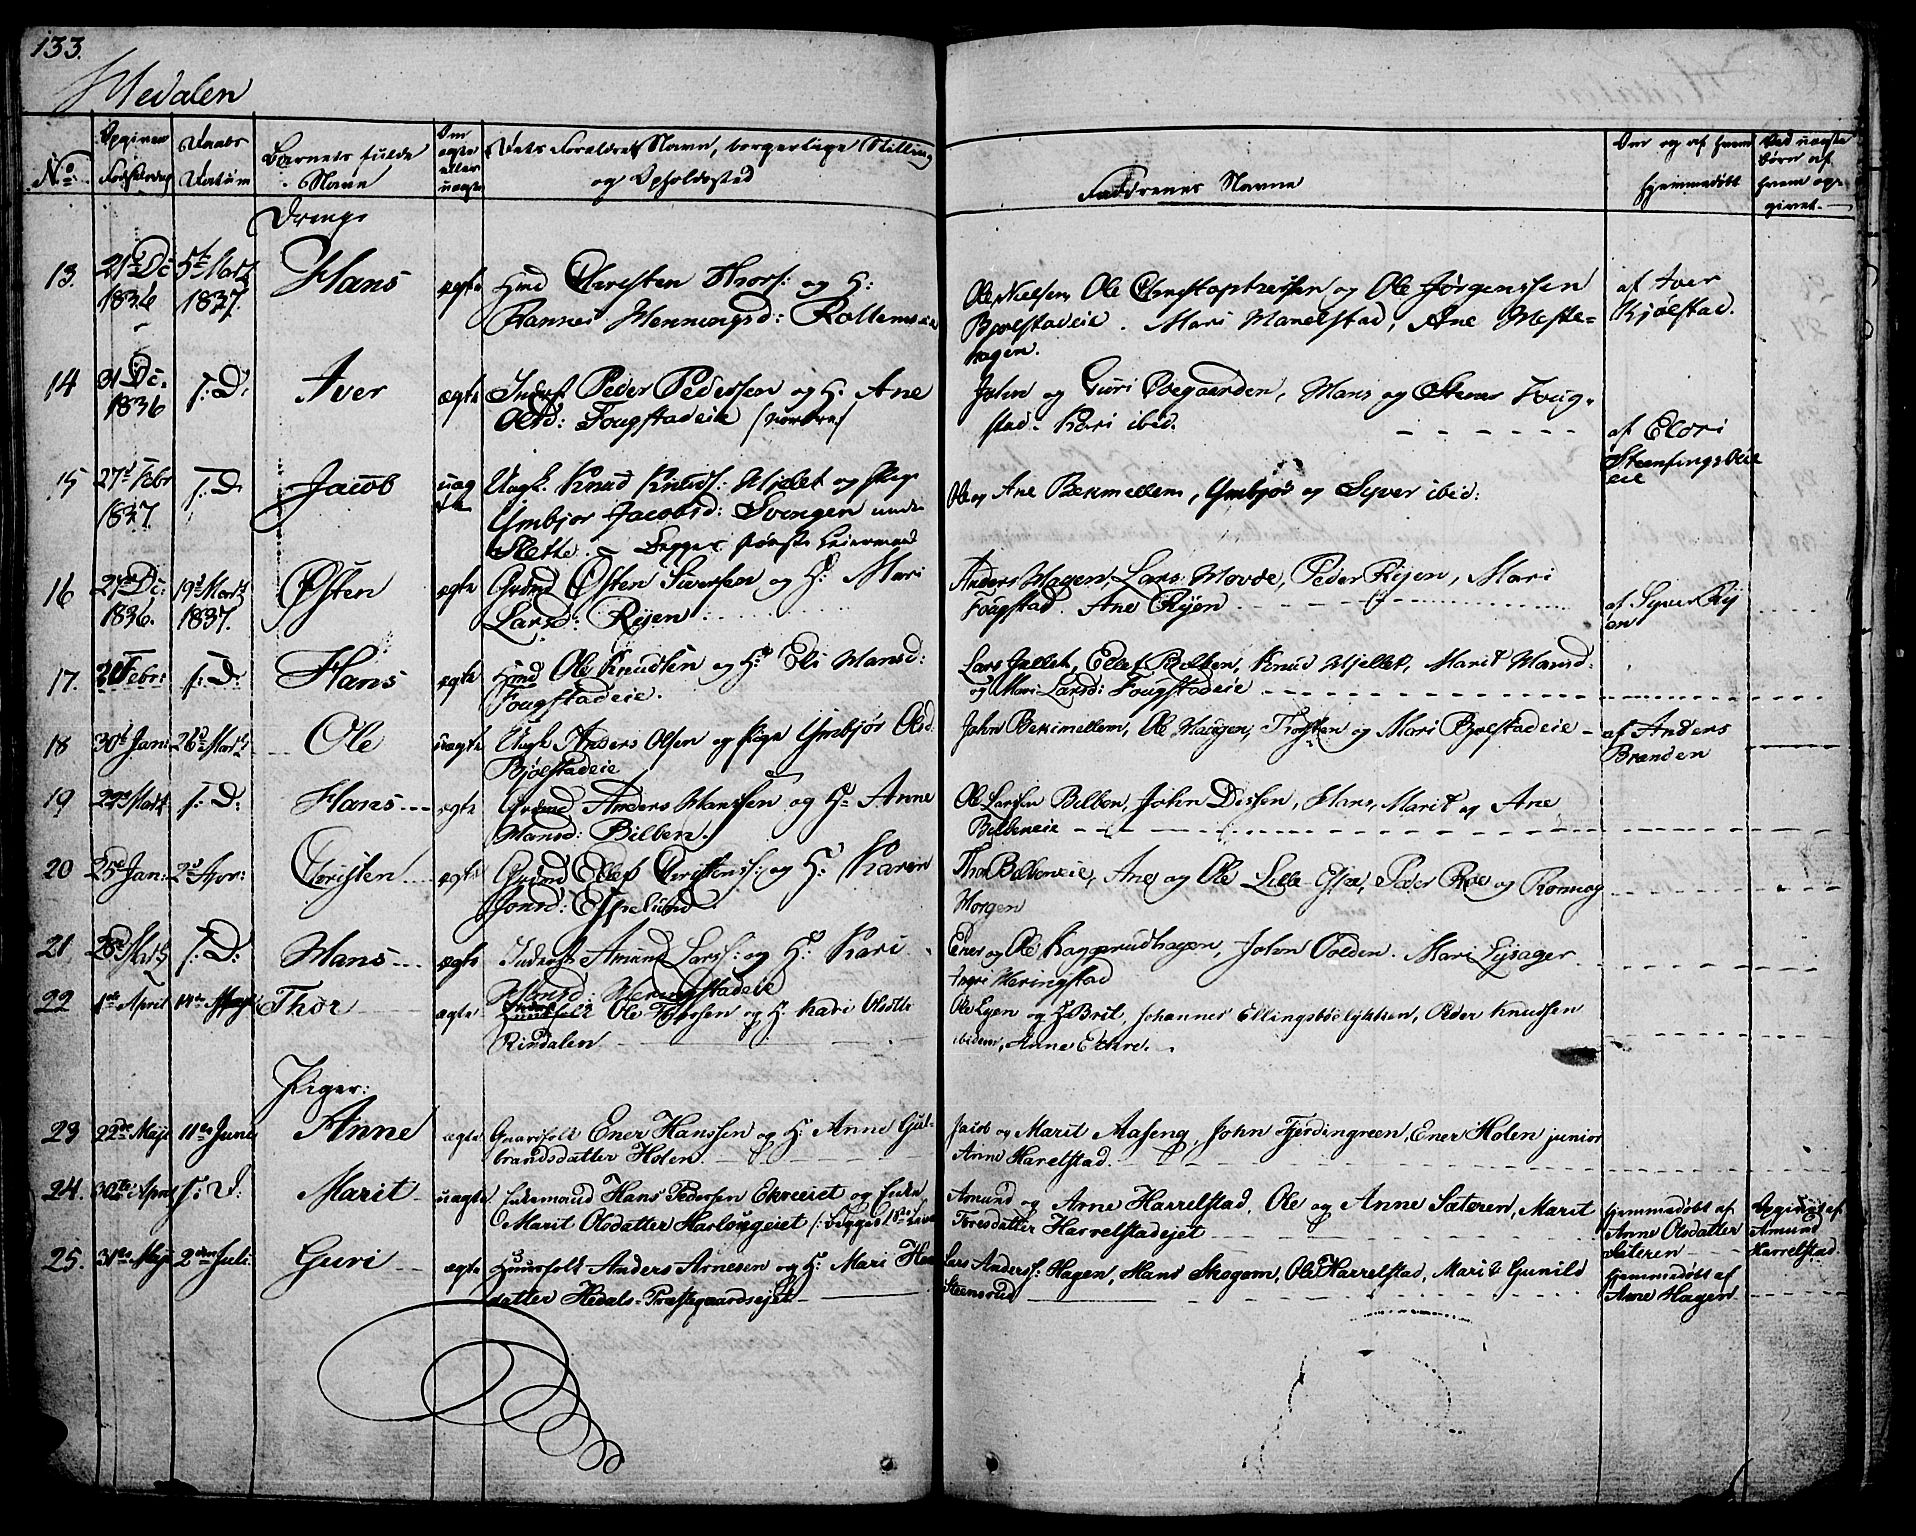 133.
Hedalen
No
Opgiven Fødselsdag
Daabs Datum
Barnets fulde Navn
Om ægte eller uægte
Dets Forældres Navn, borgerlige Stilling
og Opholdssted
Faddrenes Navne
Om og af hvem hjemmedøbt
Ved uægte børn af hvem opgivet
Drenge
13. 21de Dc 1836 5te Martz 1837. Hans ægte Hmd Christen Thors: og H:
Hannes Henningsd: Rollemseie
Ole Nielsen, Ole Christophersen og Ole Jørgenssen
Bjølstadeie. Mari Manelstad, Ane Mestehagen.
af Iver Kjølstad.
14 31 Dc. 1836 s: D: Iver ægte Inderst Peder Pederssen og H: Ane
Olsd: Fougstadeie /nordre/
John og Guri Øvegaarden, Hans og Stener Foug-
stad. Kari ibid.
af Elori Steensingsbeie
15 27de Febr 1837. s: D Jacob uægte Ungk: Knud Knuds: Hjelet og Pige
Ymbjør Jacobsd: Svingen under
Slette. Begges første Leiermaal
Ole og Ane Bekimellem, Ymbjør og Syver ibid:
16 27de Dc: 1836. 19de Martz 1837. Østen ægte Grdmd Østen Siverssen og H: Mari
Larsd: Rijen
Anders Hagen, Lars Hovde, Peder Rijen, Mari
Fougstad. Ane Rijen
af Syver Rijen
17. 20 Febr: s: D: Hans ægte Hmd Ole Knudsen og H: Eli Hansd:
Fougstadeie.
Lars Jellet, Elef Bolben, Knud Hjellet, Marit Hansd:
og Mari Larsd: Fougstadeie
18 30te Jan: 26de Martz Ole uægte Ungk: Anders Olsen og Pige Ymbjør Olsd.
Bjølstadeie
John Bekimellem, Ole Haugen, Thosten og Mari Bjølstadeie
af Anders Branden
19 29de Martz s: D: Hans ægte Grdmd Anders Hanssen og H: Anne
Hansd: Bilben.
Ole Larssen Bilben, John Dissen, Hans, Marit og Ane
Bilbeneie
20 25de Jan: 2de Apr: Christen ægte Grdmd Ellef Christenss: og H: Karen
Jonsd: Espelund
Thor Bilbeneie, Ane og Ole Lille Gsæ, Peder Roe og Ronnog
Morgen
21. 28de Martz s: D: Hans ægte Inderst Amund Larss: og H: Kari
Hansd: Heringstadeie
Ener og Ole Kaggerudhagen, John Volden. Mari Lysager
Ingri Heringstad
22 1ste April 14de Maji Thor ægte Ole Thorssen og H: Kari Olsdtr
Rindalen
Ole Lyen og H: Brit, Johannes Ellingsbøelykken, Peder Knudsen
ibidem, Anne Ekkre.
Piger:
23 22de Maji 11te Juni Anne ægte Gaardfolk Ener Hanssen og H: Anne Gul-
brandsdatter Holen.
Jacob og Marit Aaseng, John Fjerdingreen, Ener Holen junior
Anne Harelstad.
24. 30te April s: D: Marit uægte Enkemand Hans Pedersen Ekreeiet og Enke
Marit Olsdatter Harlougeiet /: begges 1ste Leierm
Amund og Arne Harrelstad, Ole og Anne Sæteren, Marit
Toresdatter Harrelstadejet
hjemmedøbt af Anne Olsdatter Sæteren
Opgivet af Amund Harrelstad.
25. 31te Maji 2den Juli. Guri ægte Huusfolk Anders Arnesen og H: Mari Hans
datter Hedals-Præstegaardsejet
Lars Anderss: Hagen, Hans Skogom, Ole Harrelstad, Mari & Gunild
Steensrud
hjemmedøbt af Arne Hagen